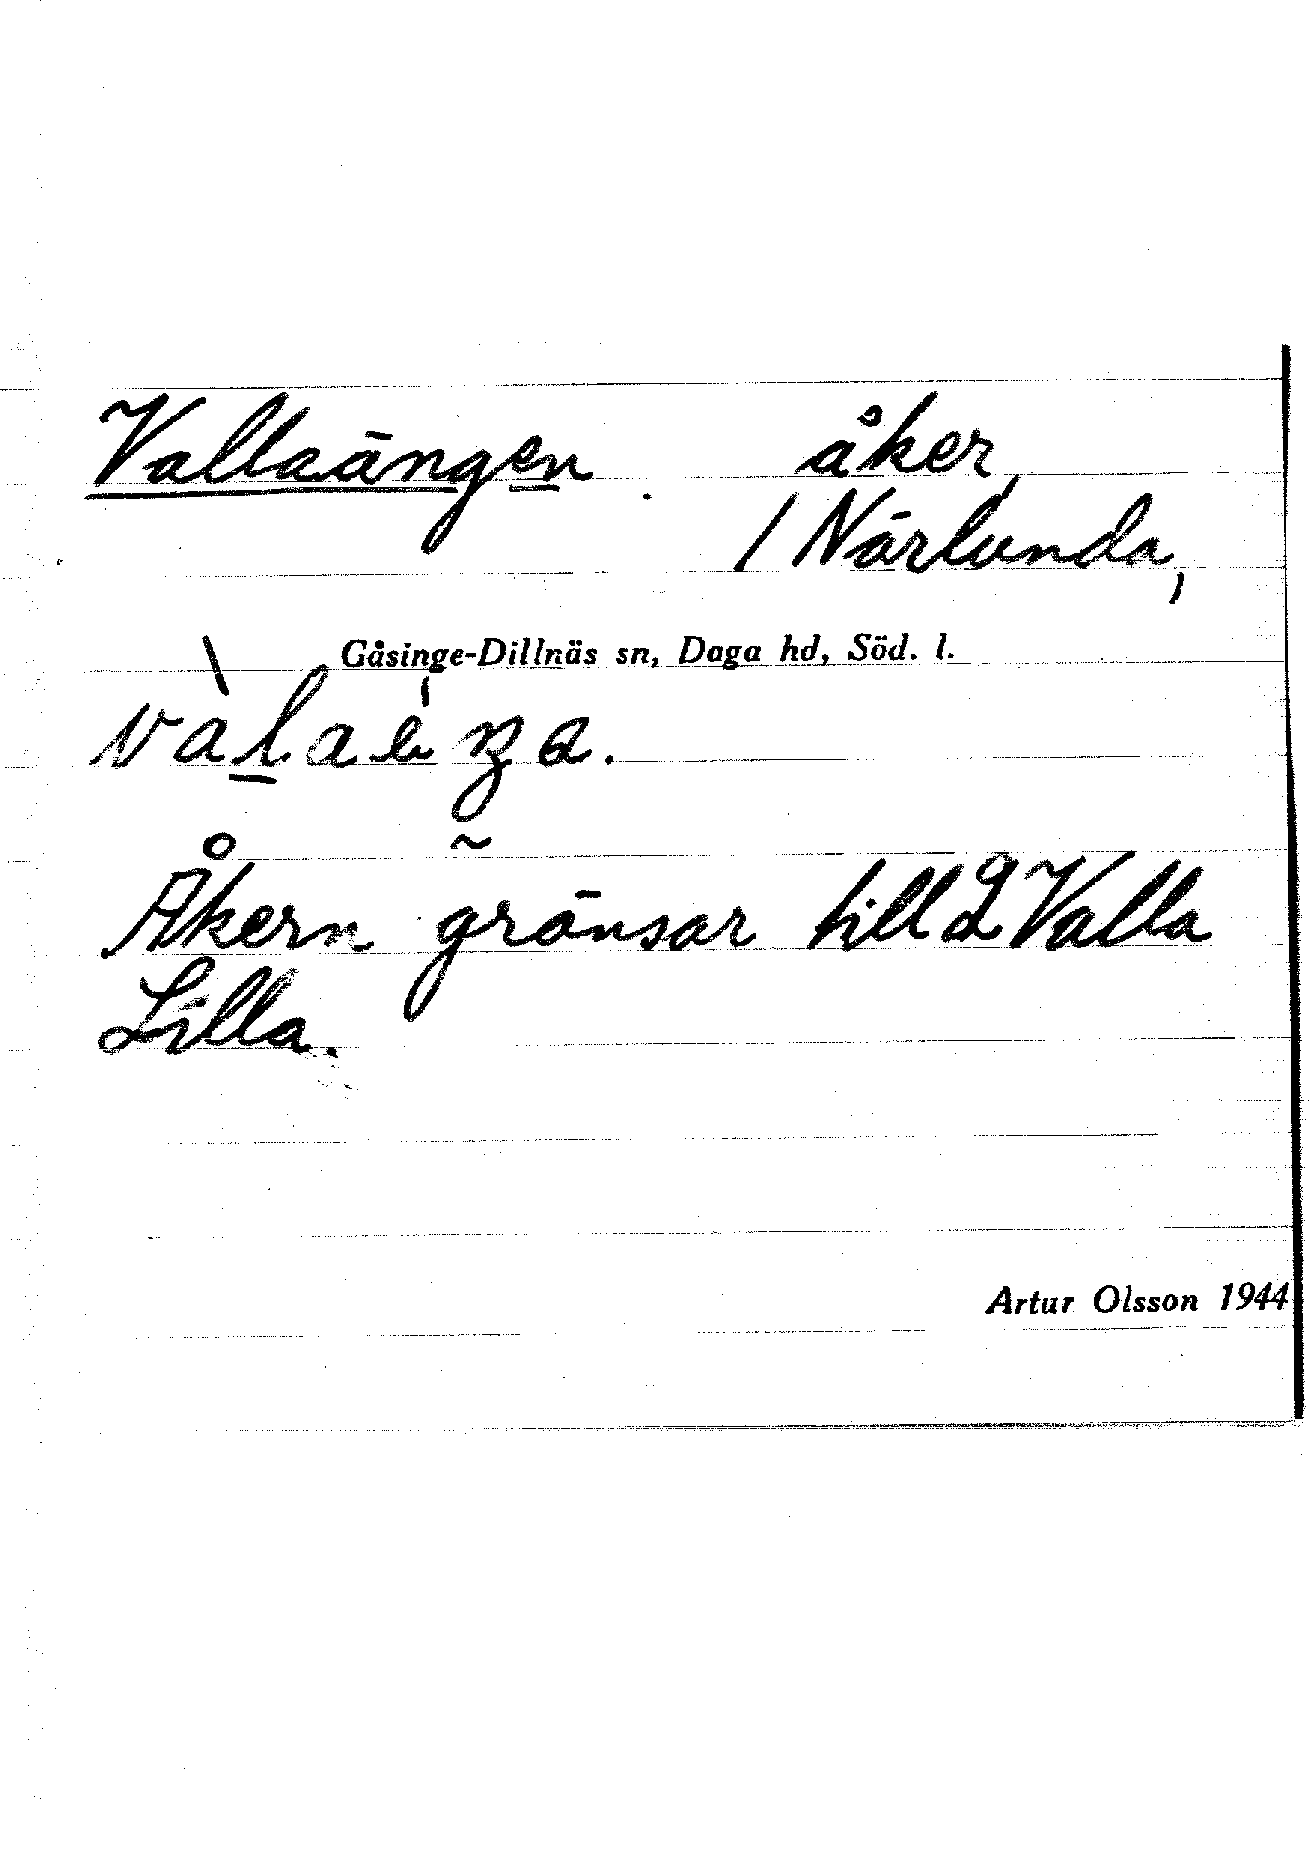 Vallaängen. åker,
/ Närlunda,
Gåsinge-Dillnäs sn, Daga hd, Söd. l.
Åkern gränsar till Valla
Lilla.
Artur Olsson 1944